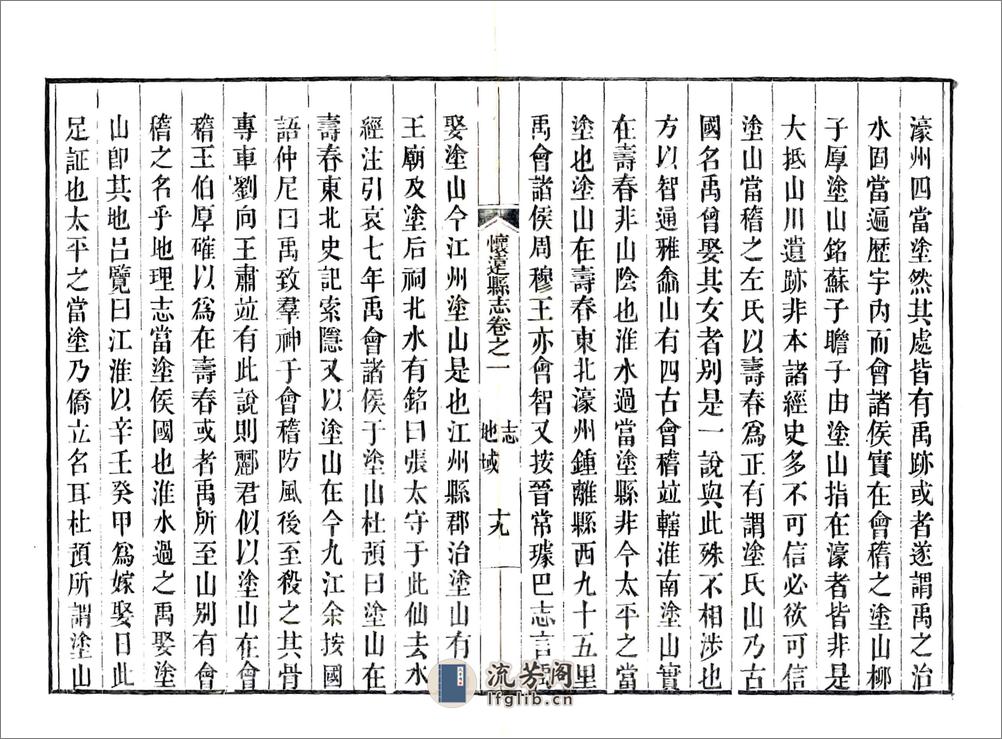 濠州四當塗然其處皆有禹跡或者遂謂禹之治
水固當遍歴宇内而會諸侯實在會稽之塗山柳
子厚塗山銘蘇子瞻子由塗山指在濠者皆非是
大抵山川遺跡非本諸經史多不可信必欲可信
塗山當稽之左氏以壽春為正有謂塗氏山乃古
國名禹曾娶其女者别是一說與此殊不相涉也
方以智通雅嵞山有四古會稽竝轄淮南塗山實
在壽春非山陰也淮水過當塗縣非今太平之當
塗也塗山在壽春東北濠州鍾離縣西九十五里
禹會諸侯周穆王亦會智又按晉常璩巴志言禹
懷遠縣志卷之一
志
地域
十九
娶塗山今江州塗山是也江州縣郡治塗山有禹
王廟及塗后祠北水有銘曰張太守于此仙去水
經注引哀七年禹會諸侯于塗山杜預曰塗山在
壽春東北史記索隱又以塗山在今九江余按國
語仲尼曰禹致羣神于會稽防風後至殺之其骨
專車劉向王肅竝有此說則酈君似以塗山在會
稽王伯厚確以爲在壽春或者禹所至山别有會
稽之名乎地理志當塗侯國也淮水過之禹娶塗
山卽其地呂覽曰江淮以辛壬癸甲爲嫁娶日此
足証也太平之當塗乃僑立名耳杜預所謂塗山
流芳阁
lfglib.cn